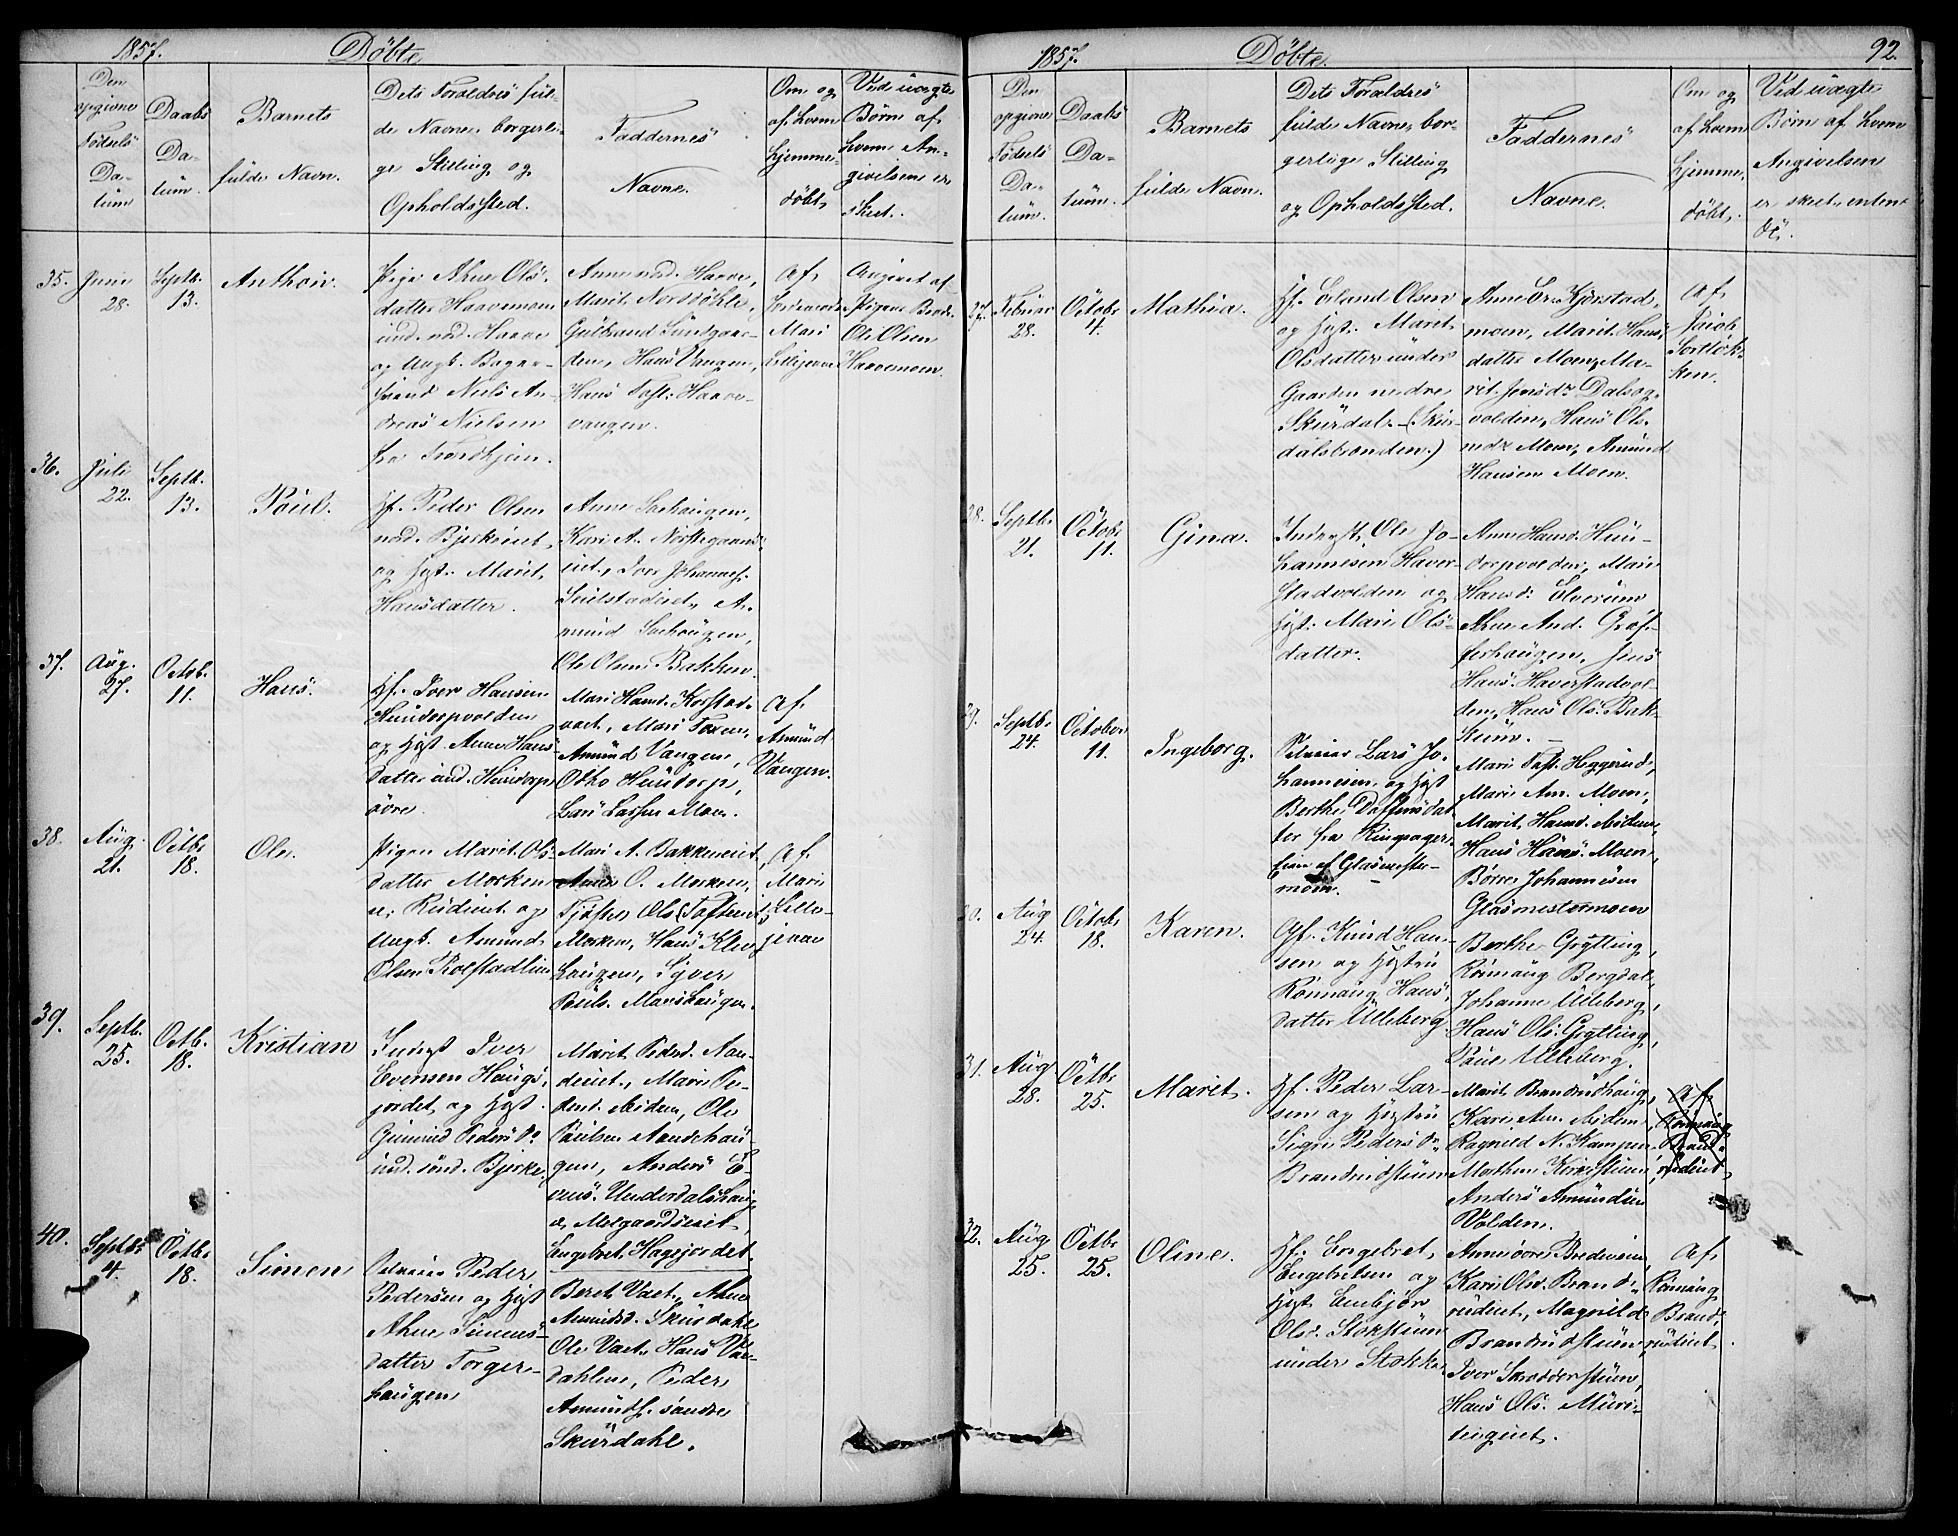 1857. Döbte
Den
opgivne
Födsels
Da-
tum
Daabs
Da-
tum.
Barnets
fulde Navn.
Dets Forældres ful-
de Navne, borgerli-
ge Stilling og
Opholdssted.
Faddernes
Navne.
Om og
af hvem
hjemme-
döbt.
Ved uægte
Börn af
hvem An-
givelsen er
skeet.
35. Juni
28.
Septb.
13.
Anthon.
Pige Ahne Ols-
datter Haavemoen
und. nd. Haave
og Ungk. Bager-
svend Niels An-
dreas Nielsen
fra Trondhjem.
Anne nd. Haave,
Marit Nordsöhle,
Gulbrand Sundgaar-
den, Hans Vangen,
Hans Tost. Haave-
vangen.
Af
Jordemoder
Mari
Lillejevne
Angivet af
Pigens Broder
Ole Olsen
Haavemoen.
36. Juli
22.
Septb.
13.
Poul.
Hf. Peder Olsen
nord. Bjerkeriet
og Hgst. Marit
Hansdatter.
Anne Sorhaugen,
Kari A. Norstegaards-
iet, Iver Johannes.
Seielstadiet, A-
mund Sorhaugen,
Ole Olsen Bakken.
37. Aug.
27.
Octob.
11.
Hans.
Hf. Iver Hansen
Hundorpvolden
og Hgst. Anne Hans-
datter und. Hundorp
övre.
Mari Hansd. Korstad-
vaet, Mari Foxen,
Amund Vangen,
Otho Hundorp,
Lars Larssen Moen.
Af
Amund
Vangen.
38. Aug.
21.
Octb.
18.
Ole.
Pigen Marit Ols-
datter Morken
e. Rudiet og
Ungk. Amund
Olsen Rolstadlien
Mari A. Bakkeriet,
Anne O. Morken,
Tjöster Ols. (Tofteriet)
Morken, Hans Klev-
haugen, Syver
Pouls. Marishaugen.
Af
Mari
Lille-
jevne
39. Septb.
25.
Octb.
18.
Kristian
Indgst Iver
Evensen Haugs-
jordet og Hgst.
Gunnild Peders Dr.
und. sönd. Bjerke.
Marit Pedersd. Aan-
deriet, Mari Pe-
dersd. Ödem, Ole
Paulsen Aandehau-
gen, Anders E-
vens. Underdalshaug
e. Melgaardseiet,
Engebret Hagejordet.
40. Septb.
4.
Octb.
18.
Simen
Selveier Peder
Pedersen og Hgst
Ahne Simens-
datter Torger-
haugen
Beret Vaet, Ahne
Amundsd. Skurdahl
Ole Vaet, Hans Var-
dahlen, Peder
Amunds. söndre
Skurdahl.
1857. Döbte. 92.
Den
opgivne
Födsels
Da-
tum.
Daabs
Da-
tum.
Barnets
fulde Navn.
Dets Forældres
fulde Navne, bor-
gerlige Stilling
og Opholdssted.
Faddernes
Navne.
Om og
af hvem
hjemme-
döbt.
Ved uægte
Börn af hvem
Angivelsen
er skeet,
27. Februar
28.
Octobr
4.
Mathia.
Hf. Erland Olsen
og Hgst. Marit
Olsdatter under
Gaarden nedre
Skurdal - (Skur-
dalsbrenden.)
Anne Kjörstad-
moen, Marit Hans-
datter Moen, Ma-
rit Jensdr. Dalsog-
volden, Hans Ols.
nedr. Moen, Amund
Hansen Moen.
Af
Jacob
28. Septb.
21.
Octobr
11.
Gina.
Indrgst, Ole Jo-
hannesen Haver-
stadvolden og
Hgst. Mari Ols-
datter.
Anne Hansd. Hun-
dorpvolden, Mari
Hansd. Elverum
Ahne And. Graf-
ferhaugen, Jens
Hans. Haverstadvol-
den, Hans Ols. Bak-
kum.
29. Septbr
24.
October
11.
Ingeborg.
Selveier Lars Jo-
hannesen og Hgst
Berthe
ter fra Ringsager
Glasmester-
moen.
Mari Tost. Heggeriet,
Mari Am. Moen,
Marit Hansd. Ödem,
Hans Hans. Moen,
Börre Johannesen
Glasmestermoen
30. Aug
24.
Octobr
18.
Karen.
Gf. Knud Han-
sen og Hgstru
Rönnaug Hans-
datter Ulleberg.
Berthe Grytting,
Rönnaug Bergdal,
Johanne Ulleberg,
Hans Ols. Grytting,
Poul Ulleberg.
31. Aug
28.
Octbr
25.
Marit.
Hf. Peder Lar-
sen og Hgstru
Sign Peders Dr.
Brandrudstuen
Marit Brandrudshaug,
Kari Am. Ödem,
Ragnild N. Kampen,
Mathea Kirkestuen,
Anders Amundsen
Volden.
Af
Rönnaug
Brand-
rudeiet
32. Aug
25.
Octbr
25.
Oline.
Hf. Engebret
Engebretsen og
Hgst Embjör
Olsd. Stokstuen
under Stokke.
Anne övre Bredevein,
Kari Olsd. Brand-
rudeiet, Magnild
Brandrudstuen,
Iver Skredderstuen,
Hans Ols. Muri-
tingeiet.
Af
Rönnaug
Brand-
rudeiet.